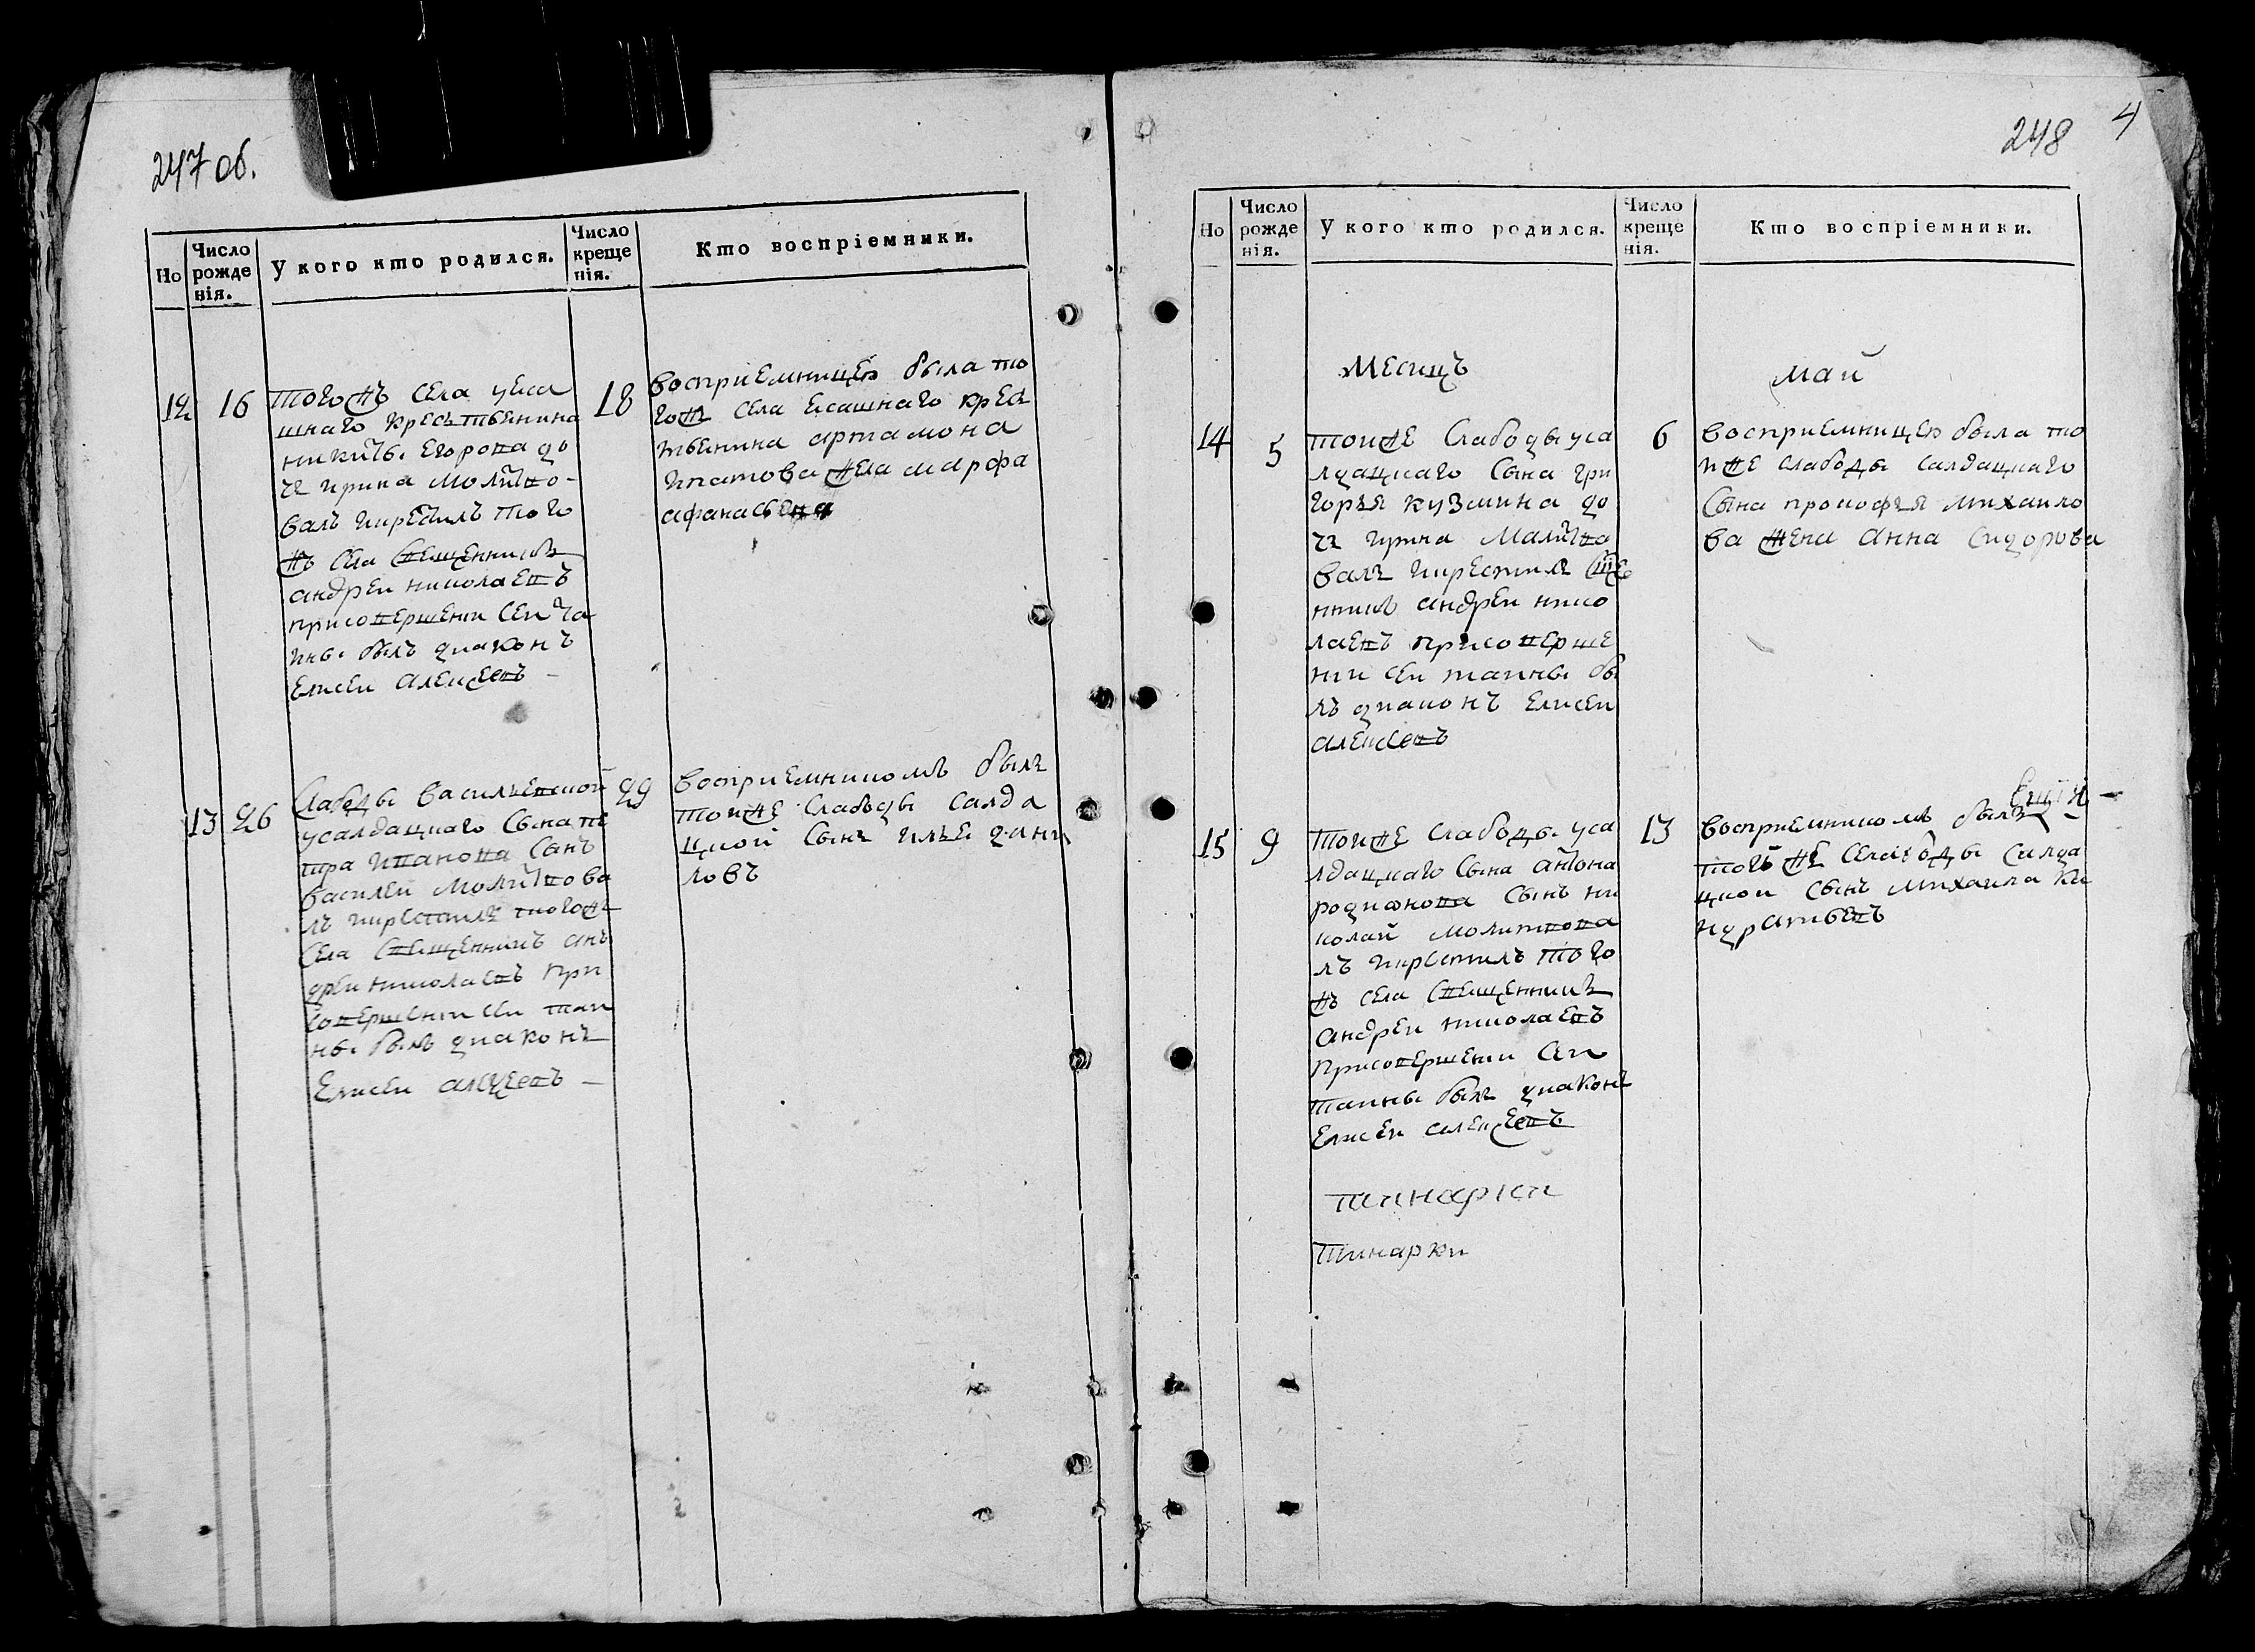 247 об.
Но
Число рожденiя.
У кого кто родился.
Число крещенiя.
Кто воспрiемники.
12
16
тогожъ села уеса
шнаго крестьвенина
никиты егорова до
чь ирина молитво-
валъ икрестилъ того
жъ села священникъ
андреи николаевъ
присовершени сеи та
ины былъ диаконъ
елисеи алексеевъ -
18
восприемницею была то
гожъ села есашнаго крес
твенина артамона
ипатова жена марфа
афанасьева
13
26
Слабоды васильевской
усалдацкаго сына пе
тра иванова сынъ
василеи молитвова
лъ икрестилъ тогожъ
села священникъ анъ
дреи николаевъ при
совершени сеи таи
ны былъ диаконъ
елисеи алексеевъ -
29
восприемникомъ былъ
тоиже слабоды салда
цкой сынъ илье дани
ловъ
248
4
Но
Число рожденiя.
У кого кто родился.
Число крещенiя.
Кто воспрiемники.
месицъ
май
14
5
тоиже слабоды уса
лдацкаго сына гри
горья кузмина до
чь ирина малитво
валъ икрестилъ свще
нникъ андреи нико
лаевъ присоверше
нии сеи таины бы
лъ диаконъ елисеи
алексеевъ
6
восприемницею была то
иже слабоды салдацкаго
сына прокофья михаило
ва жена анна сидорова
15
9
тоиже слабоды уса
лдацкаго сына антона
родионова сынъ ни
колай молитвова
лъ икрестилъ того
жъ села священникъ
андреи николаевъ
присовершени сеи
таины былъ диаконъ
елисеи алексеевъ
13
восприемникомъ былъ
тогоже слабоды салда
цкой сынъ михаила ки
ндратьевъ
тинарки
тинарки